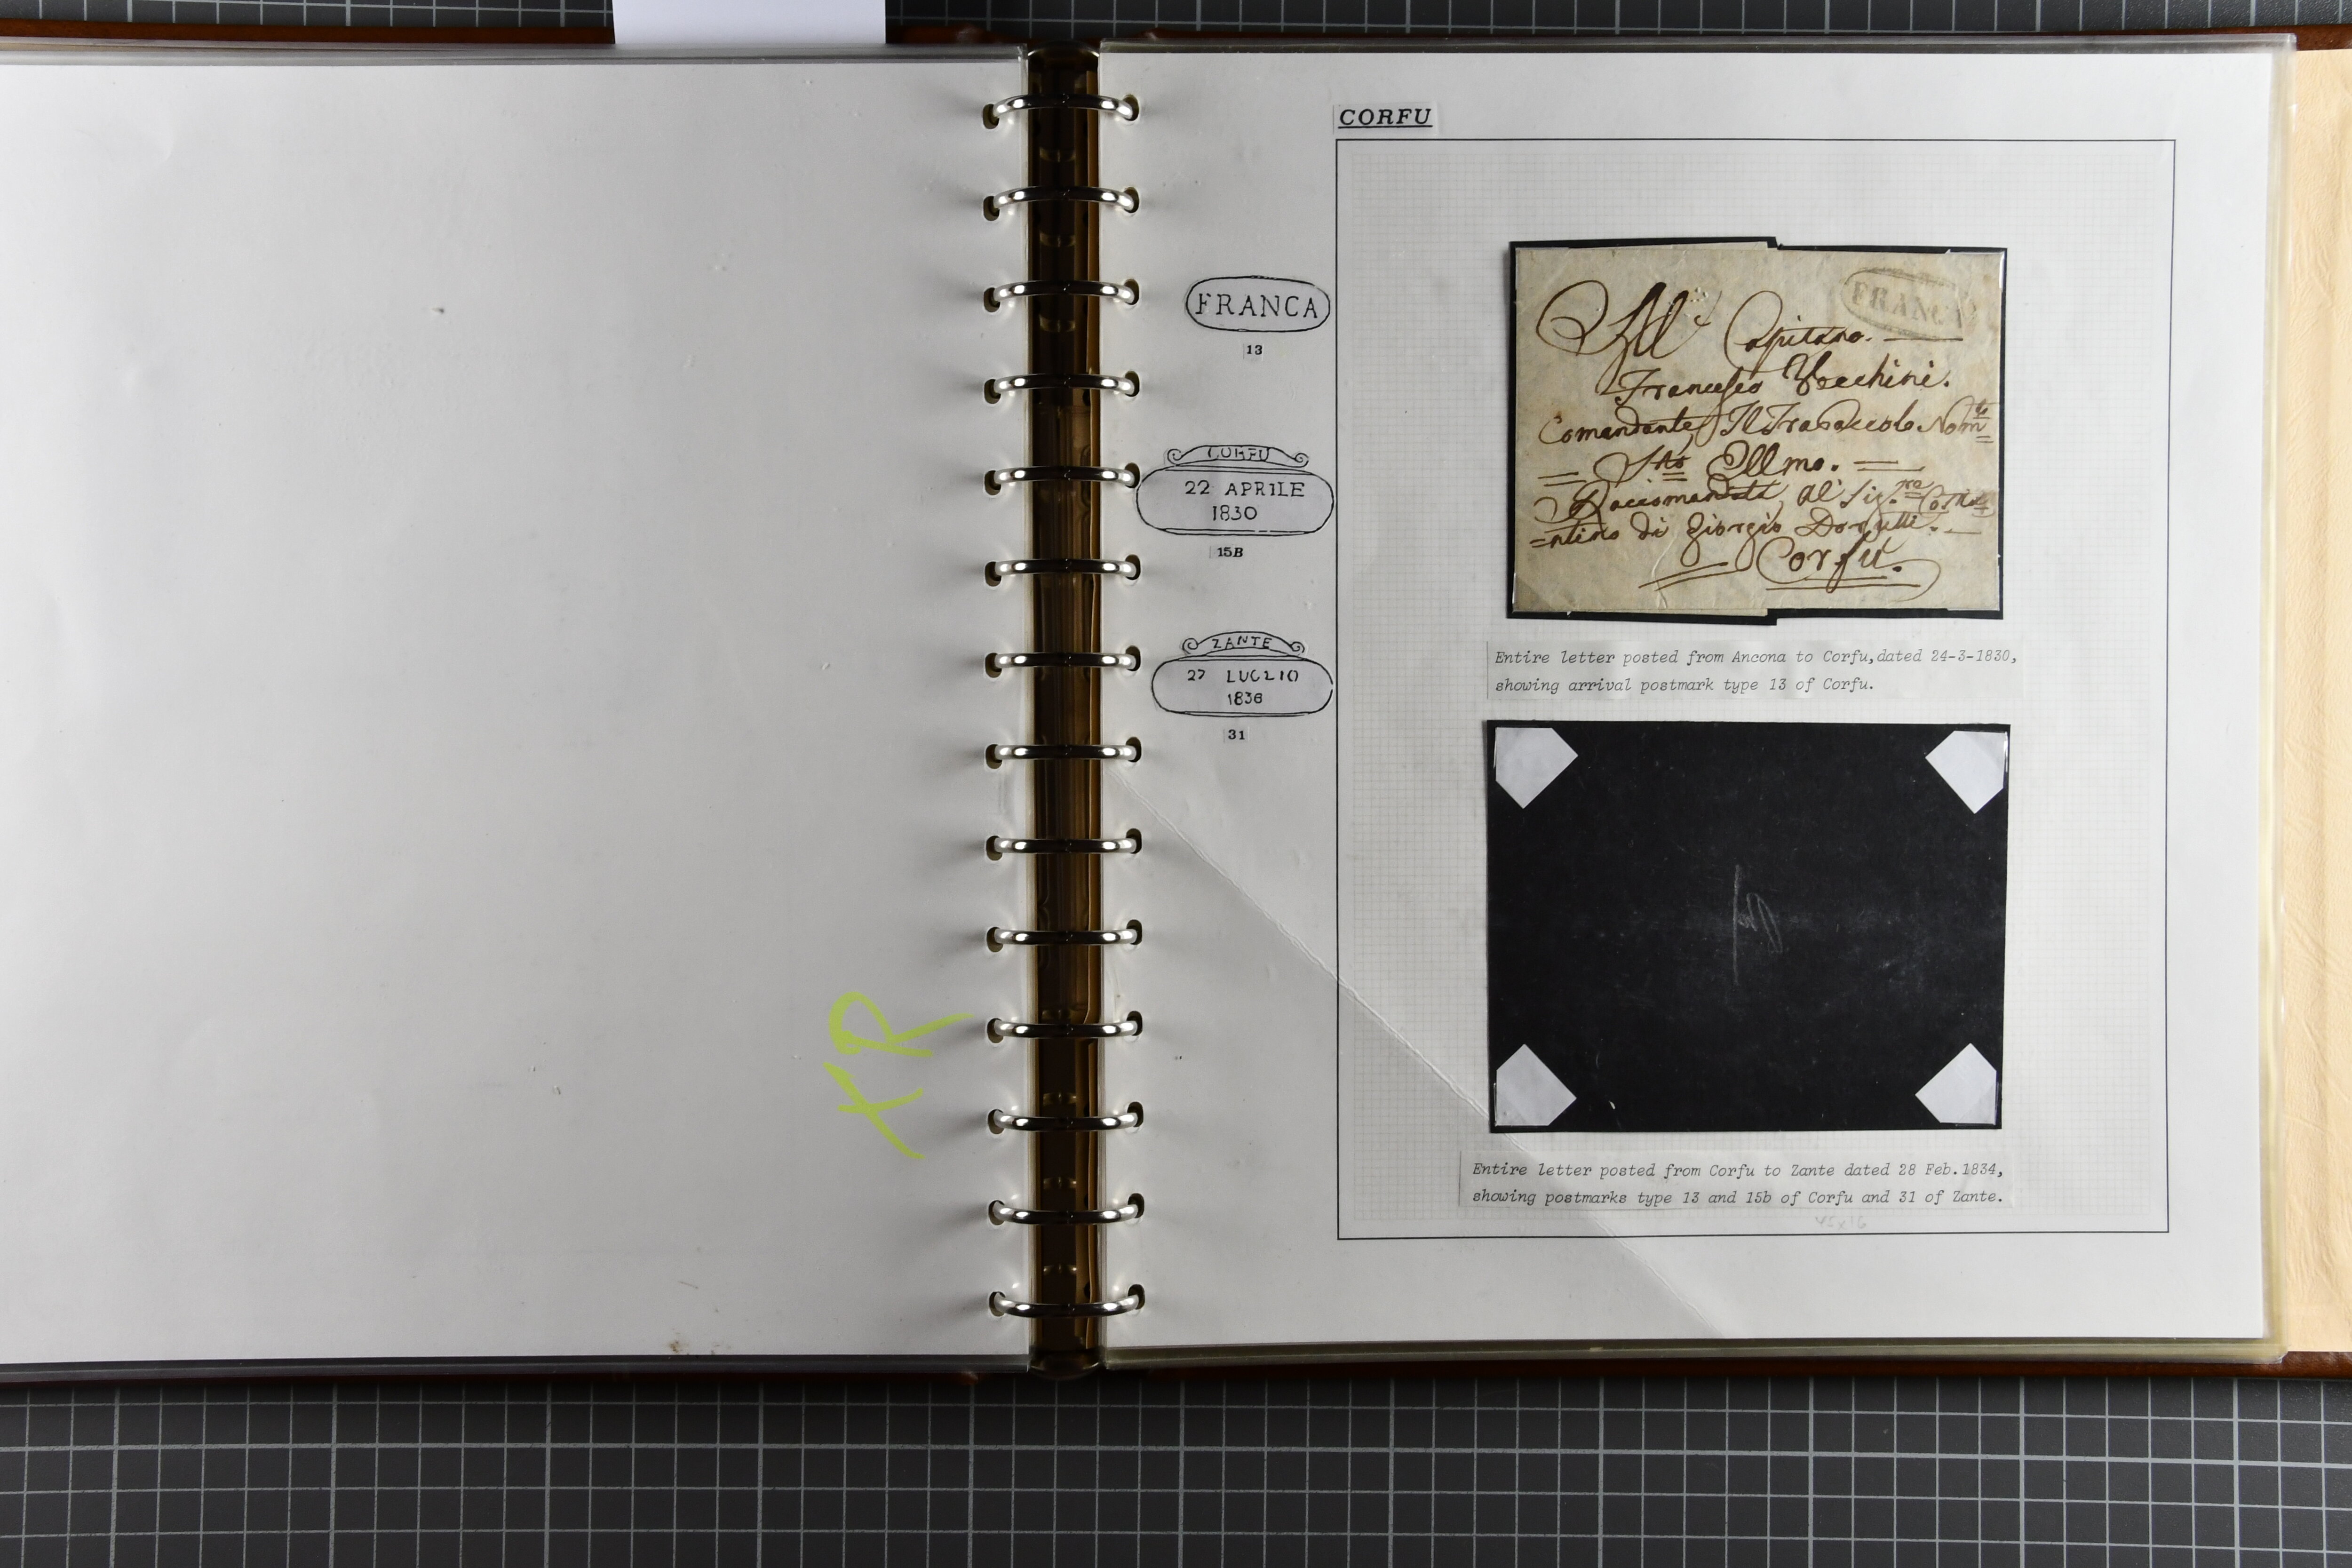 CORFU
FRANCA
13
CORFU
22 APRILE
1830
15B
ZANTE
27 LUGLIO
1836
31
FRANCA
Al Capitano.
Francesco
Comandante Il Trabaccolo Nom
Illmo.
al Sig.re Costa
=ntino di Giorgio
Corfu.
Entire letter posted from Ancona to Corfu,dated 24-3-1830,
showing arrival postmark type 13 of Corfu.
Entire letter posted from Corfu to Zante dated 28 Feb.1834,
showing postmarks type 13 and 15b of Corfu and 31 of Zante.
45x16
TR